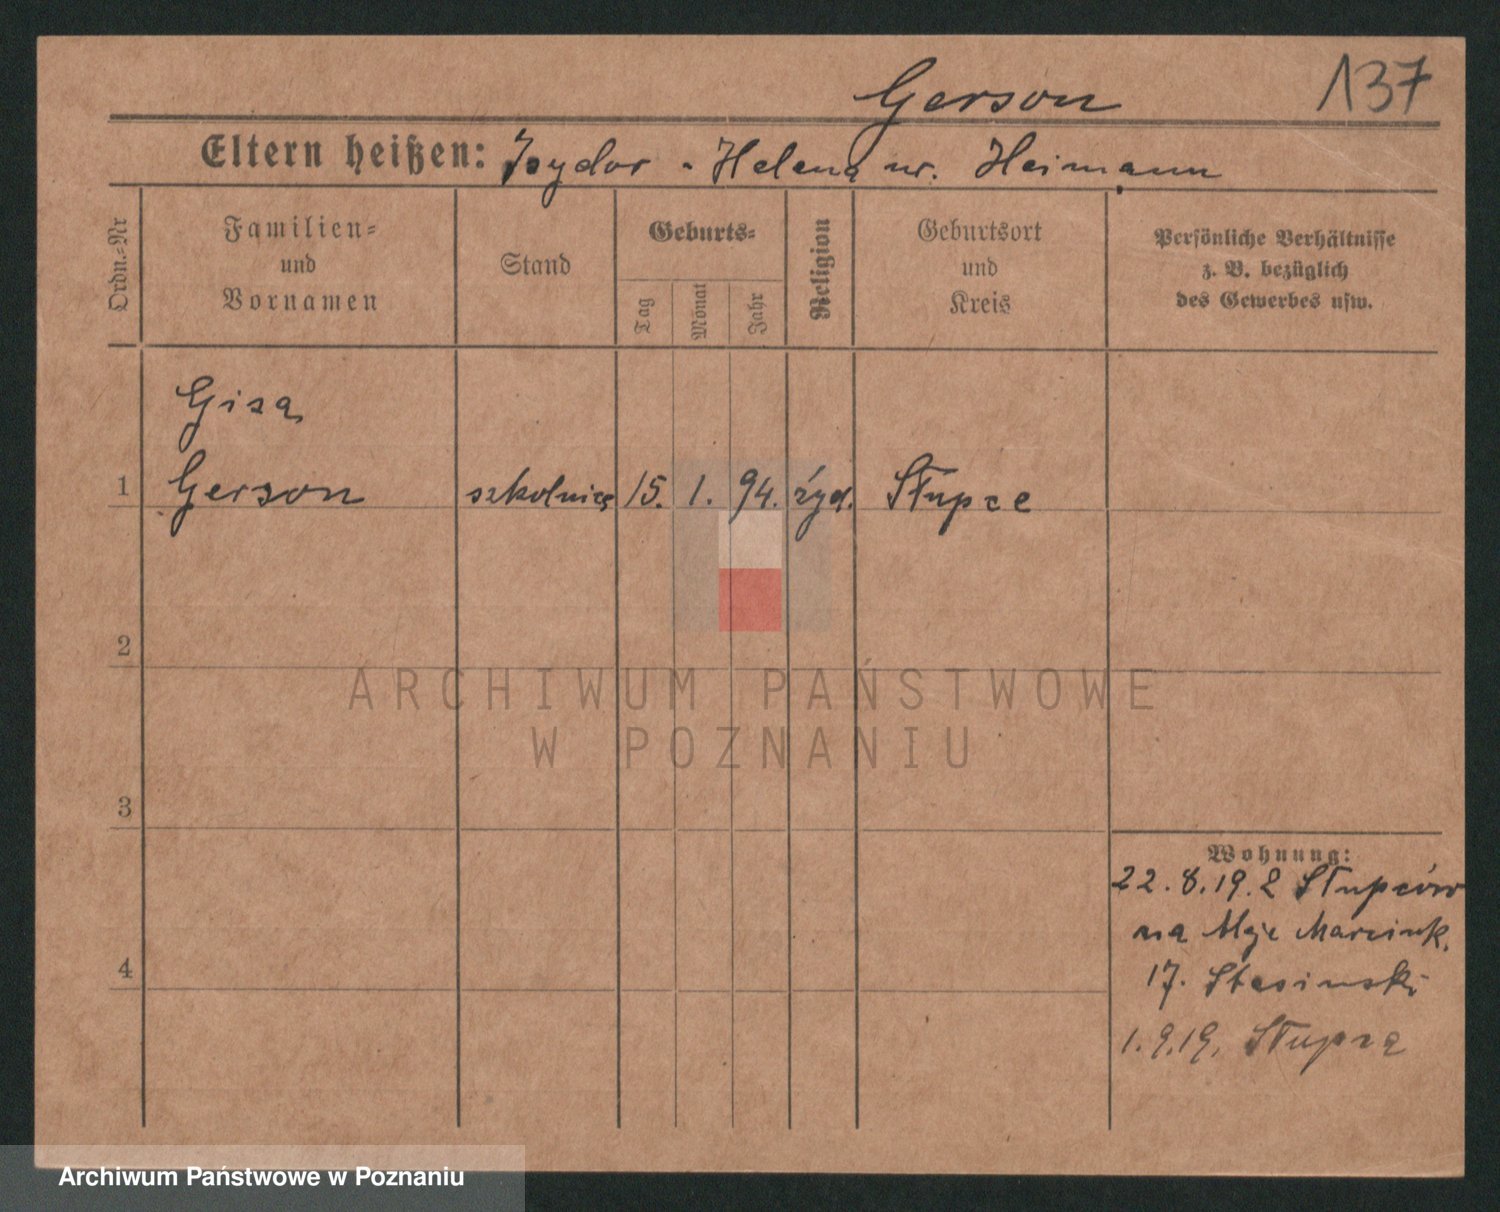 Gerson
137
Eltern heißen: Izydor - Helena ur. Heimann
Ordn.-Nr
Familien-
und
Vornamen
Stand
Geburts-
Tag
Monat
Jahr
Religion
Geburtsort
und
Kreis
Persönliche Verhältnisse
z. B. bezüglich
des Gewerbes usw.
Giza
1 Gerson szkolnica 15. 1. 94. żyd. Słupce
2
ARCHIWUM PAŃSTWOWE
W POZNANIU
3
Wohnung:
22.8.19. z Słupców
na Marcink.
4
17. Stasinski
1.9.19. Słupca
Archiwum Państwowe w Poznaniu